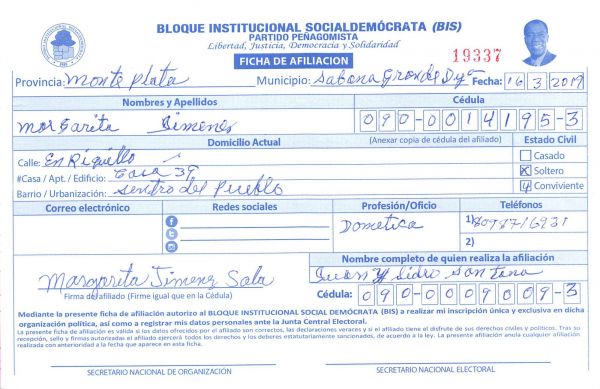 BLOQUE INSTITUCIONAL SOCIALDEMÓCRATA (BIS)
PARTIDO PEÑAGOMISTA
Libertad, Justicia, Democracia y Solidaridad
FICHA DE AFILIACION
19337
Provincia: Monte Plata Municipio: Sabana Grande Fecha: 16/3/2019
Nombres y Apellidos Cédula
Margarita Jimenes 090-0014195-3
Domicilio Actual (Anexar copia de cédula del afiliado) Estado Civil
Calle: Enriquillo Casado
#Casa / Apt. / Edificio: Casa 39 X Soltero
Barrio / Urbanización: Sentro del Pueblo Conviviente
Correo electrónico Redes sociales Profesión/Oficio Teléfonos
Dometica 1)
2)
Nombre completo de quien realiza la afiliación
Margarita Jimenez Sala Juan Ysidro Santana
Firma de afiliado (Firme igual que en la Cédula) Cédula: 090-0009009-3
Mediante la presente ficha de afiliación autorizo al BLOQUE INSTITUCIONAL SOCIAL DEMÓCRATA (BIS) a realizar mi inscripción única y exclusiva en dicha
organización política, así como a registrar mis datos personales ante la Junta Central Electoral.
La presente ficha de afiliación es valida si los datos ofrecidos por el afiliado son correctos, las declaraciones veraces y si el afiliado tiene el disfrute de sus derechos civiles y políticos. Tras su
recepción, sello y firmas autorizadas el afiliado ejercerá todos los derechos y los deberes estatutariamente sancionados, de acuerdo a la ley. La presente afiliación anula cualquier afiliación
realizada con anterioridad a la fecha que aparece en esta ficha.
SECRETARIO NACIONAL DE ORGANIZACIÓN SECRETARIO NACIONAL ELECTORAL